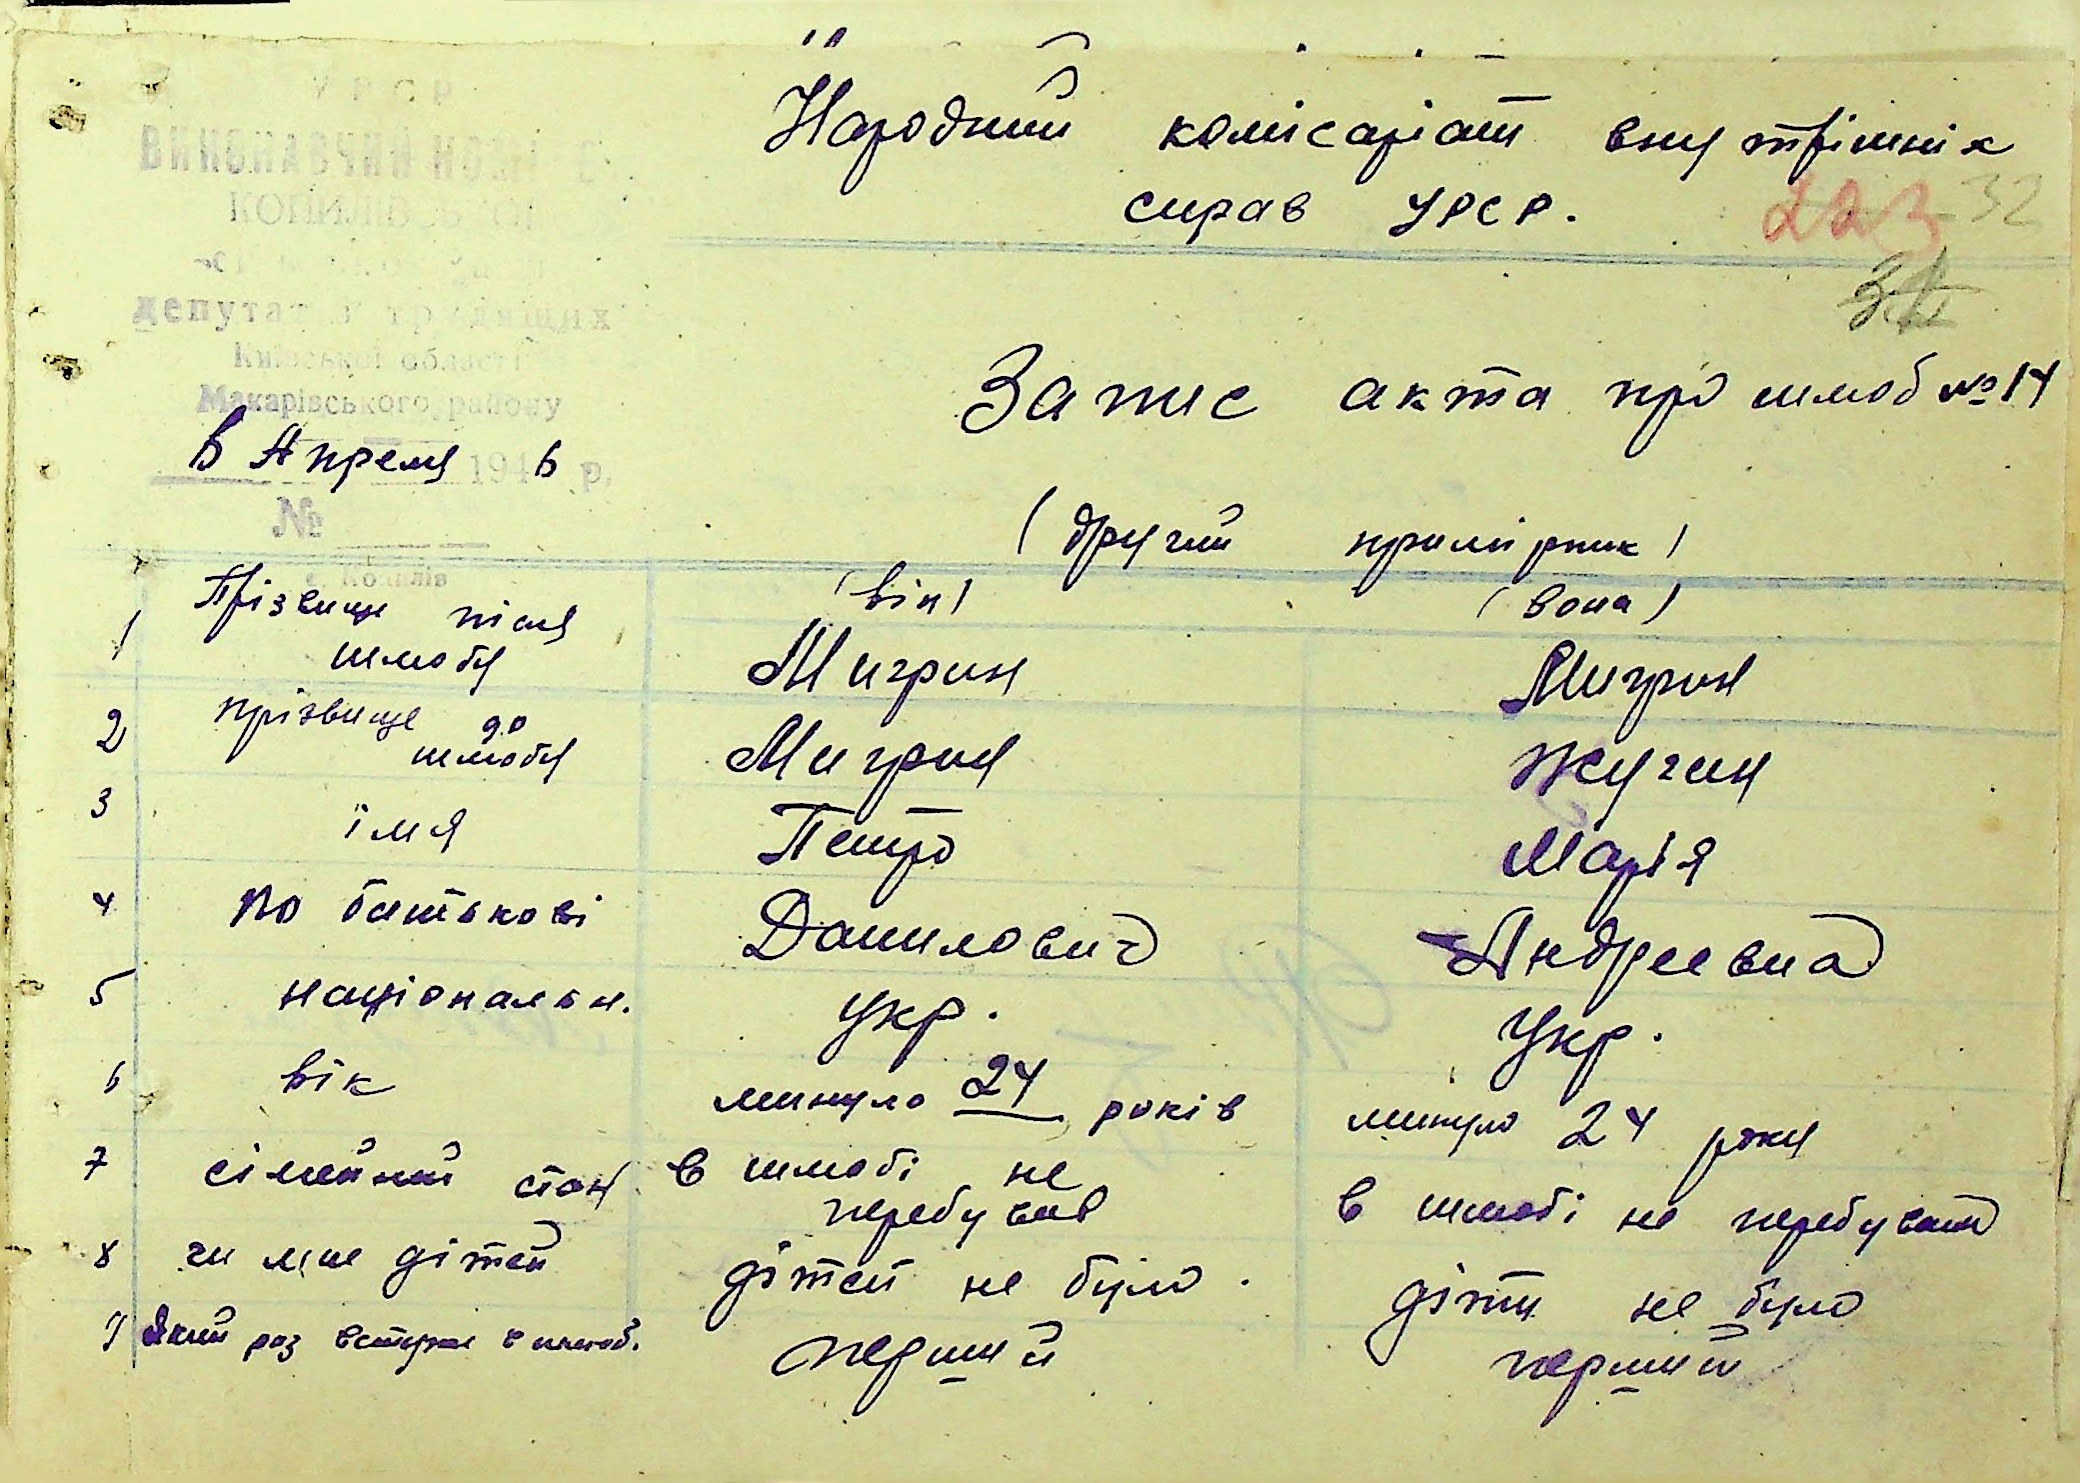 Народний комісаріат внутрішніх
справ УРСР.
223 32
УРСР
ВИКОНАВЧИЙ
депутатів трудящих
Київської області
Макарівського району
6 Апреля 1946 р.
№
с. Копилів
Запис акта про шлюб № 14
(другий примірник)
(він) (вона)
1 Прізвище після шлюбу Мигрин Мигрин
2 прізвище до шлюбу Мигрин Жугин
3 імя Петро Марія
4 по батькові Данилович Андреевна
5 національн. укр. Укр.
6 вік минуло 24 років минуло 24 роки
7 сімейний стан в шлюбі не перебував в шлюбі не перебувала
8 чи має дітей дітей не було. діти не було
9 Який раз вступає в шлюб. перший перший